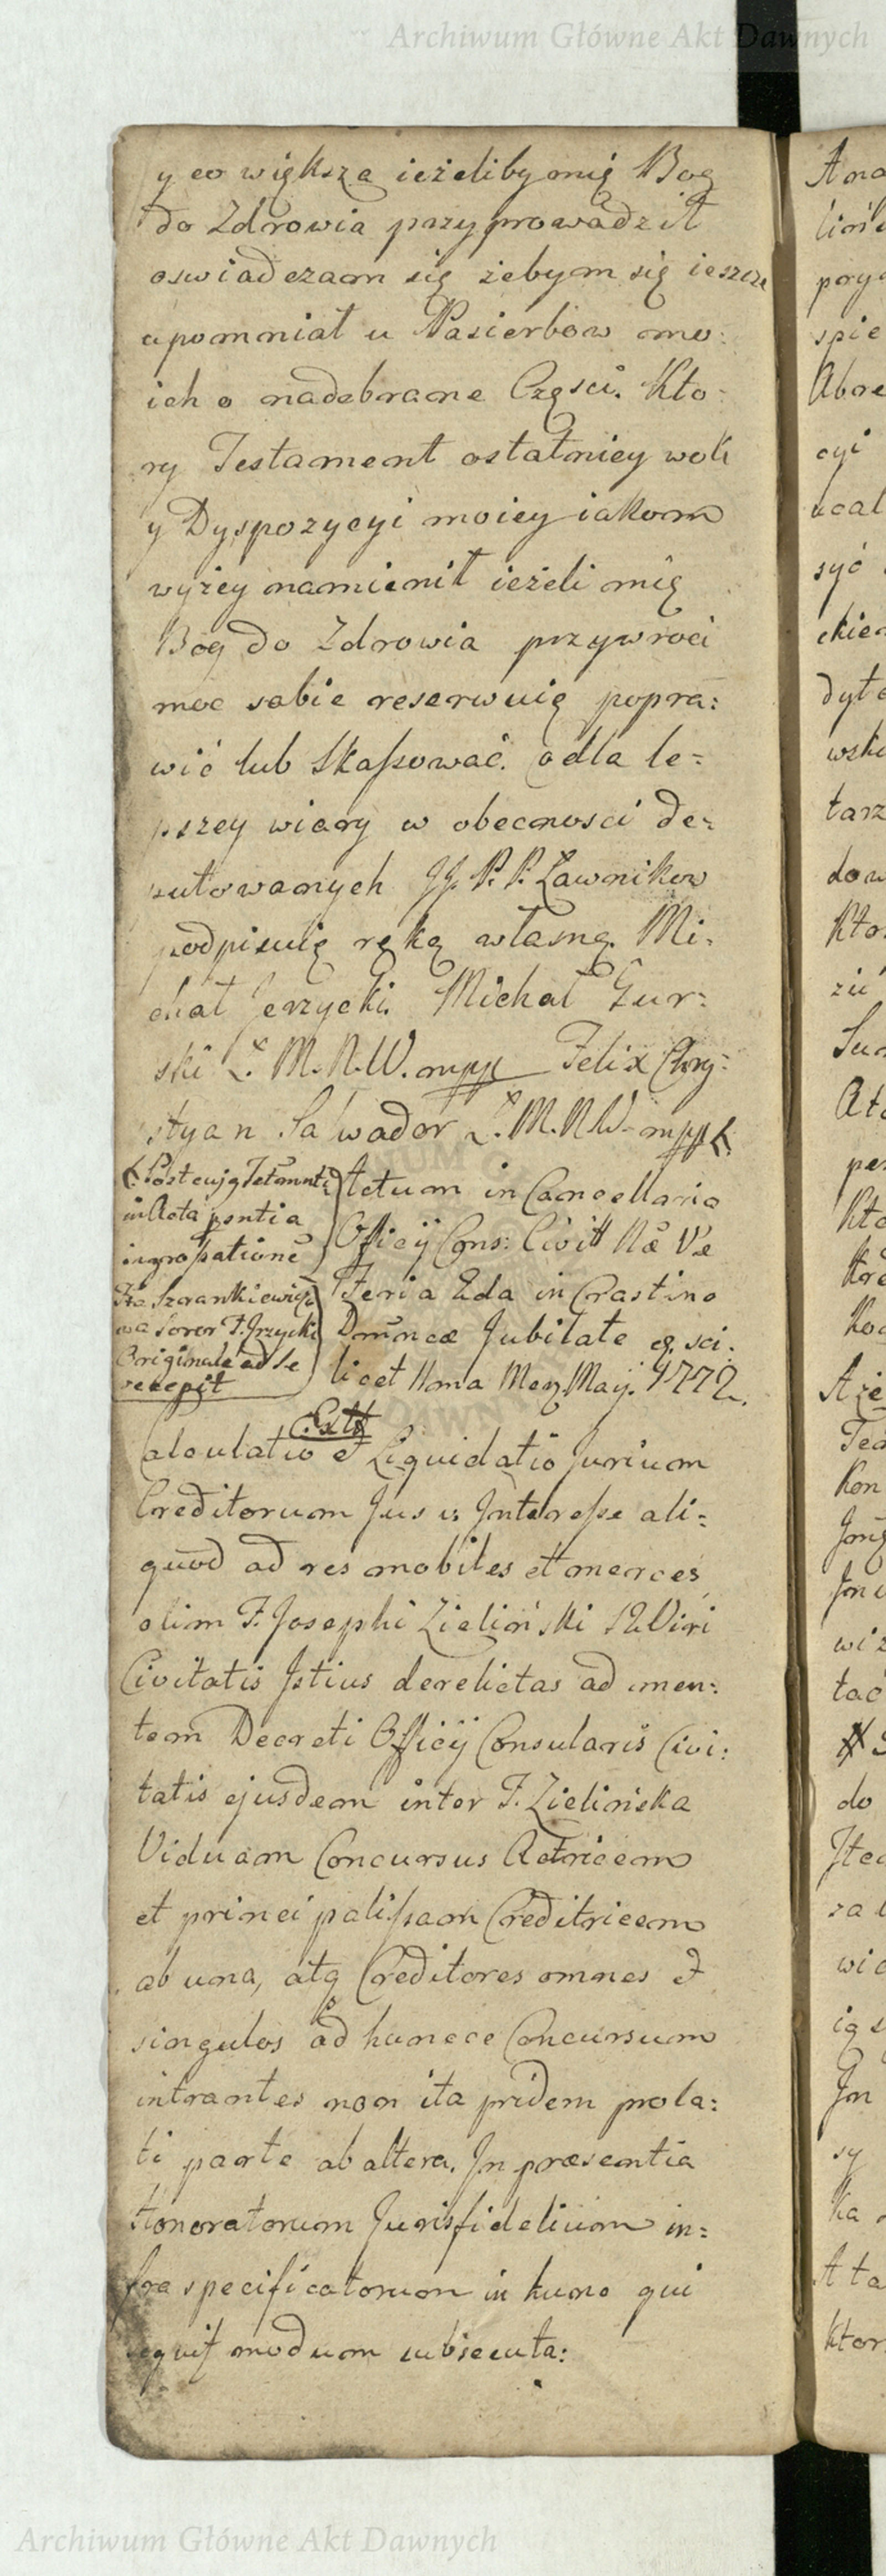 Archiwum Główne Akt Dawnych
y co większa ieżeliby mię Bog
do Zdrowia przyprowadził
oswiadczam się żebym się ieszcze
upomniał u Pasierbow mo:
ich o nadebrane Częsci. Kto:
ry Testament ostatniey woli
y Dyspozycyi moiey iakom
wyżey namienił ieżeli mię
Bog do Zdrowia przywroci
moc sobie reserwuię popra:
wić lub Skaſsować. a dla le=
pszey wiary w obecnosci de=
putowanych JJ. P. P. Ławnikow
podpisuię ręką własną. Mi:
chał Jerzycki. Michał Gur:
ski Ł. M. R. W. mpp Felix Chry:
styan Salwador Ł. M. R W. mpp
(Post cujq Tetamnti
in Acta pꝛntia
ingroſsatione
Fta Szrankiewicz
wa Soror F. Jrzycki
Originale ad se
recepit
Actum in Cancellaria
Officij Cons: Civitt Næ Væ
Feria 2da in Crastino
Domncæ Jubilate eq. sci.
licet 11ma Men. Maij. 1772.
Extt
Calculatio et Liquidatio Jurium
Creditorum Jus v. Intereſse ali=
quod ad res mobiles et merces
olim F. Josephi Zieliński 12Viri
Civitatis Istius derelictas ad men:
tem Decreti Officij Consularis Civi:
tatis ejusdem inter F. Zielińska
Viduam Concursus Actricem
et principaliſsam Creditricem
ab una, atq Creditores omnes et
singulos ad huncce Concursum
intrantes non ita pridem prola:
ti parte ab altera. In præsentia
Honoratorum Jurisfidelium in=
fra specificatorum in hunc qui
sequit modum subsecuta:
Archiwum Główne Akt Dawnych